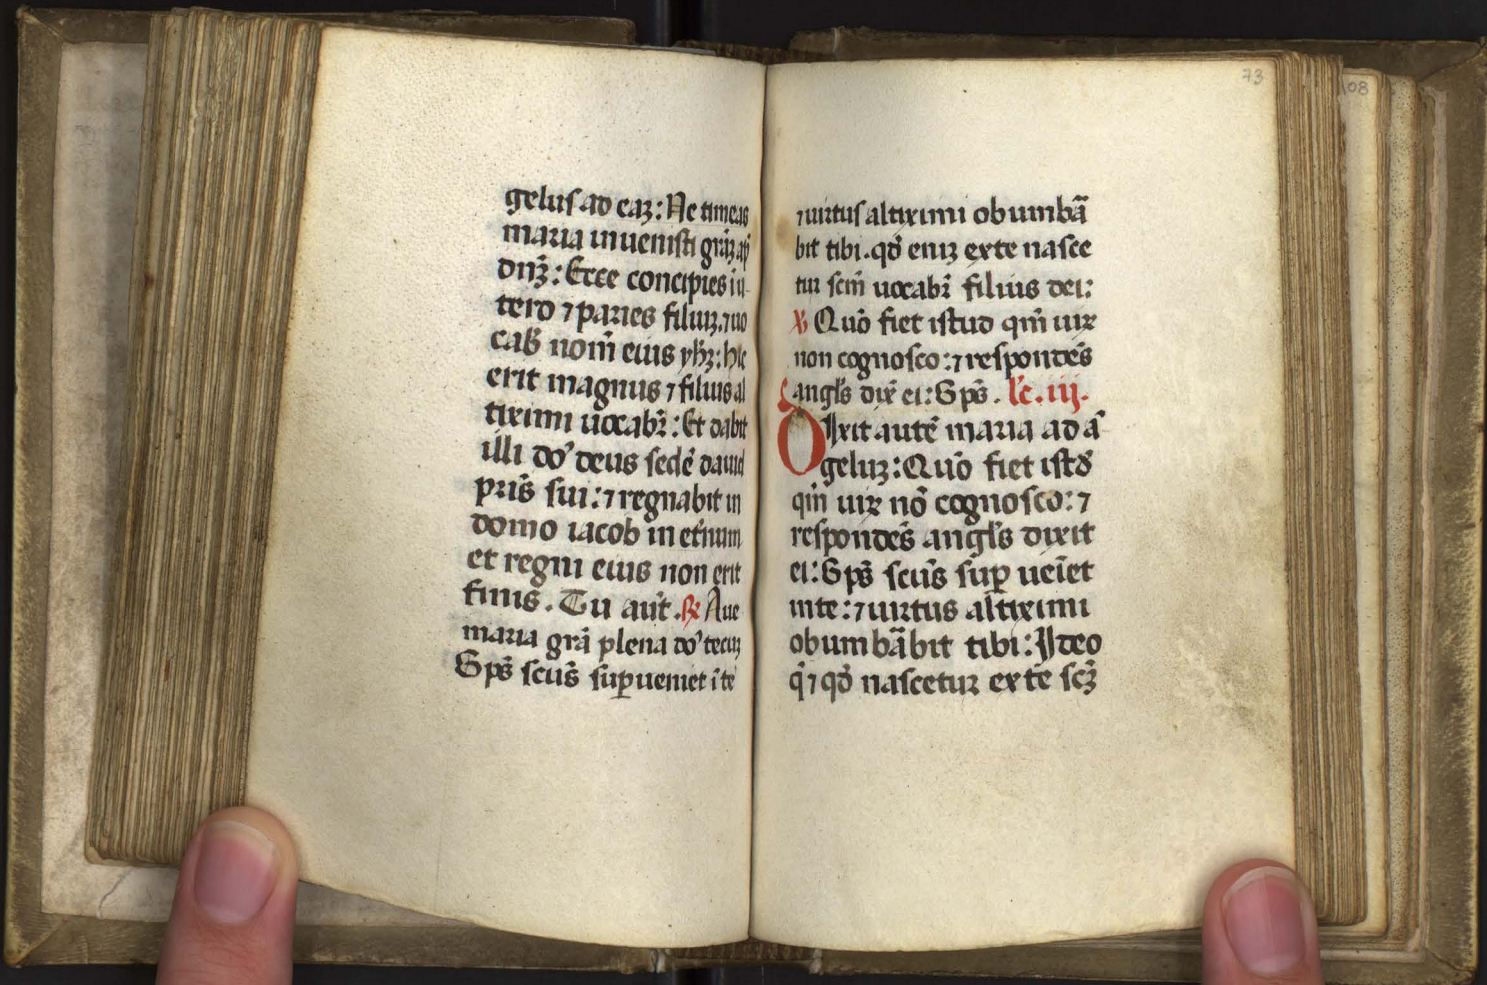 geluſ ad eaꝫ: Ne timeas
maria inueniſti grãꝫ apͩ
dñꝫ: Ecce concipies ĩ u-
tero ⁊ paries filiuꝫ. ⁊ uo
cab̃ nom̃ eius yhꝫ: hic
erit magnus ⁊ filius al
tiximi uocabr̃: Et dabit
illi do᷒ deus ſedẽ dauid
pris̃ ſui: ⁊ regnabit in
domo iacob in et̃num
et regni eius non erit
finis. Tu aut̃. ℞ Aue
maria grã plena do᷒ tecuꝫ
Sps̃ ſcus̃ ſuꝑueniet ĩ te
73
108
⁊ uirtuſ altiximi obumbã
bit tibi. qd̃ eniꝫ exte naſce
tur ſcm̃ uocabr̃ filius dei:
℣ Quõ fiet iſtud qm̃ uir
non cognoſco: ⁊ reſpondẽs
angl̃s dix̃ ei: Sps̃. lc̃. iij.
Dixit autẽ maria ad ã
geluꝫ: Quõ fiet iſtd̃
qm̃ uir nõ cognoſco: ⁊
reſpondẽs angl̃s dixit
ei: Sps̃ ſcus̃ ſuꝑ ueĩet
inte: ⁊ uirtus altiximi
obumbãbit tibi: Ideo
q̃ ⁊ qd̃ naſcetur ex te ſcꝫ̃